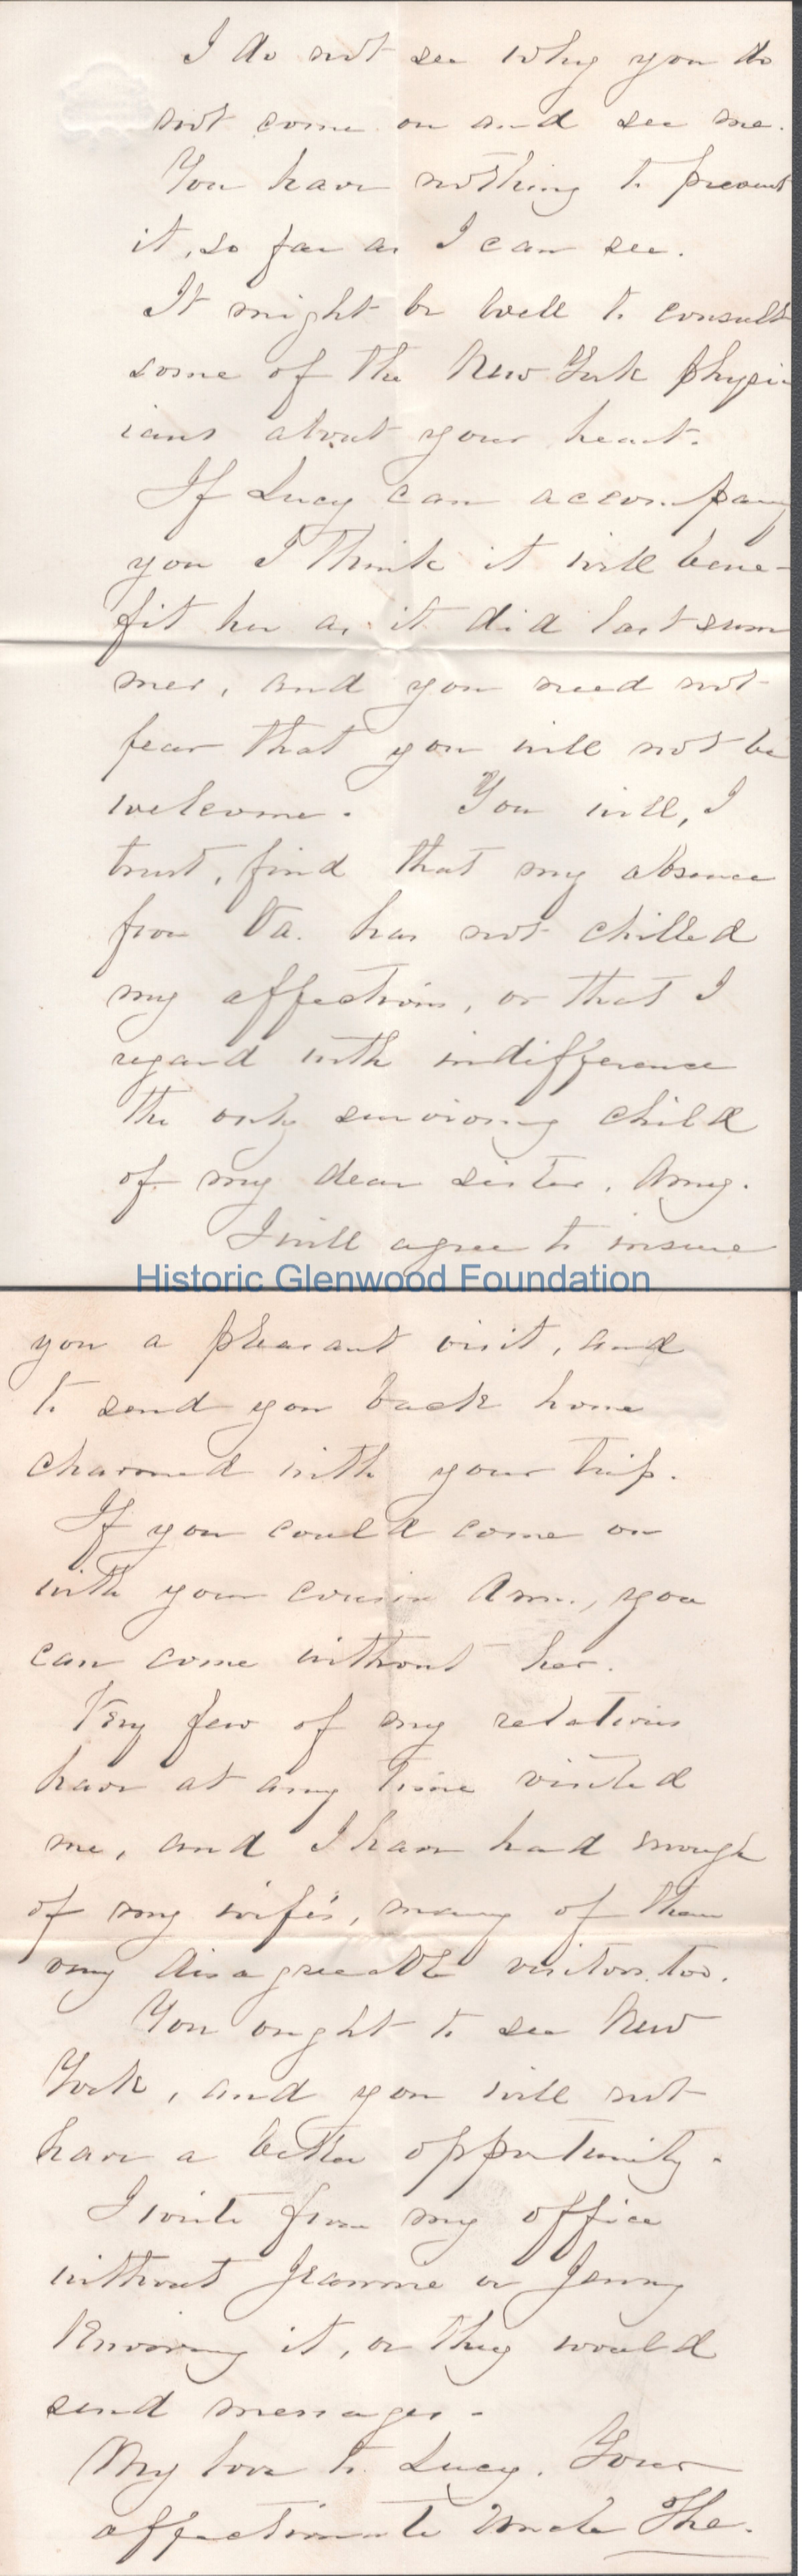 I do not see why you do
not come on and see me.
You have nothing to prevent
it, so far as I can see.
It might be well to consult
some of the New York physic
ians about your heart.
If Lucy can accompany
you I think it will bene-
fit her as it did last sum
mer, and you need not
fear that you will not be
welcome. You will, I
trust, find that my absence
from Va. has not chilled
my affections, or that I
regard with indifference
the only surviving child
of my dear sister, Amy.
I will agree to insure
Historic Glenwood Foundation
you a pleasant visit, and
to send you back home
charmed with your trip.
If you could come on
with your cousin Ann., you
can come without her.
Very few of my relations
have at any time visited
me, and I have had enough
of my wife's, many of them
very disagreeable visitors too.
You ought to see New
York, and you will not
have a better opportunity.
I write from my office
without Jeannie or Jenny
knowing it, or they would
send messages.
My love to Lucy. Your
affectionate Uncle The.